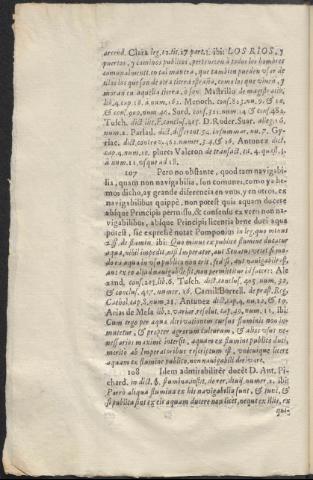 arcend. Clara leg. 12. tit. 27 part. 1. ibi: LOS RIOS, y
puertos, y caminos publicos, pertenecen à todos los hombres
comunalmente, en tal manera, que tambien pueden usar de
ellos los que son de otra tierra estraña, como los que viven, y
moran en aquella tierra, ò son: Mastrillo de magistratib.
lib. 4. cap. 18. à num. Menoch. conf. num. 9. & 10.
& conf. num. 40. Surd. conf. num. 14. & conf.
Tusch. dict. litt. F. conclus. D. Roder. Suar. allegat.
num. 2. Parlad. dict. different. in summar. nu. 7.
dict. num. & 36. Antunez dict.
cap. 4. num. 10. plures Valeron de transact. tit. 4. quæst. 4.
à num. 11. usque ad 18.
107 Pero no obstante, quod tam navigabi-
lia, quam non navigabilia, son comunes, como yà he-
mos dicho, ay grande diferencia en unos, y en otros, ex
navigabilibus quippè, non potest quis aquam ducere
absque Principis permissu, & consensu ex verò non na-
vigabilibus, absque Principis licentia bene duci aqua
potest, sic expresè notat Pomponius in leg. quo minus
ff. de flumin. ibi: Quo minus ex publico flumine ducatur
aqua, nihil impedit, nisi Imperator, aut Senatus vetet, si mo-
do ea aqua in usu publico non erit, sed si, aut navigabile est,
aut ex eo aliud navigabile fit, non permittitur id facere: Ale
xand. conf. lib. 6. Tusch. dict. conclus. num. 32.
& conclus. 417. numer. 16. Camil. Borrell. de præst. Reg.
Cathol. cap. 8. num. 21. Antunez dict. cap. 4. nu. 12. & 19.
Arias de Mesa lib. 2. variar. resolut. cap. 49. num. 11. ibi:
Cum ergo per aquæ dirivationem cursus fluminis non im-
mutetur, & propter agrorum culturam, & alios usus ne-
cessarios maximè intersit, aquam ex flumine publico duci,
meritò ab Imperatoribus rescriptum est, unicuique licere
aquam ex flumine publico, non navigabili derivare.
108 Idem admirabilitèr docèt D. Ant. Pi-
chard. in dict. §. flumina, instit. de rer. divis. numer. 1. ibi:
Porrò aliqua flumina ex his navigabilia sunt, & tunc, &
si publica sint ex eis aquam ducere non licet, neque ex illis, ex